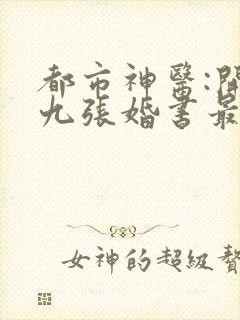 都市神醫:開
九張婚書最
女神的超級贅